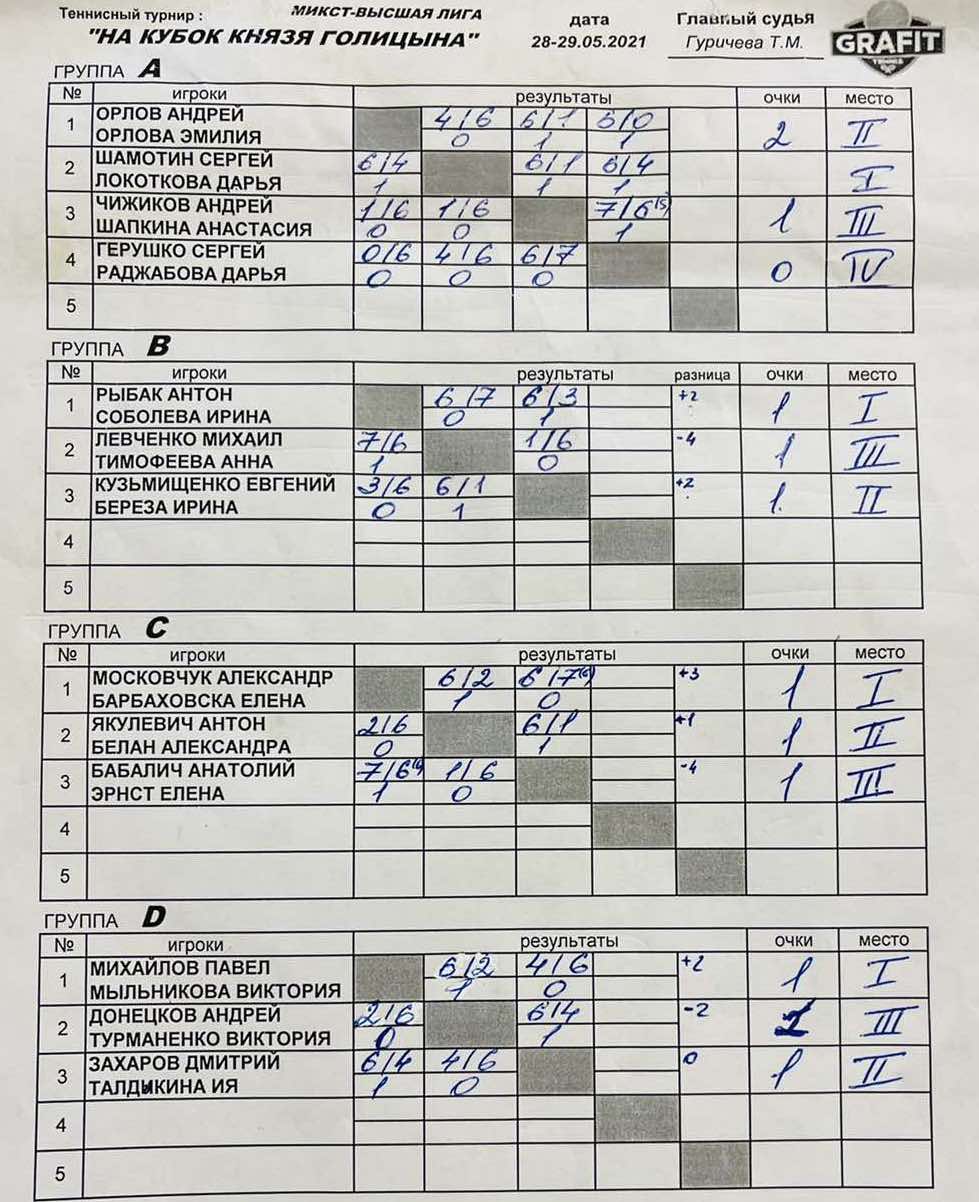 Теннисный турнир : МИКСТ-ВЫСШАЯ ЛИГА дата Главный судья
"НА КУБОК КНЯЗЯ ГОЛИЦЫНА" 28-29.05.2021 Гуричева Т.М. GRAFIT
TENNIS
ГРУППА A
№ игроки результаты очки место
1 ОРЛОВ АНДРЕЙ 4/6 6/1 6/0 2 II
ОРЛОВА ЭМИЛИЯ 0 1 1
2 ШАМОТИН СЕРГЕЙ 6/4 6/1 6/4 I
ЛОКОТКОВА ДАРЬЯ 1 1 1
3 ЧИЖИКОВ АНДРЕЙ 1/6 1/6 7/6(5) 1 III
ШАПКИНА АНАСТАСИЯ 0 0 1
4 ГЕРУШКО СЕРГЕЙ 0/6 4/6 6/7 0 IV
РАДЖАБОВА ДАРЬЯ 0 0 0
5
ГРУППА B
№ игроки результаты разница очки место
1 РЫБАК АНТОН 6/7 6/3 +2 1 I
СОБОЛЕВА ИРИНА 0 1
2 ЛЕВЧЕНКО МИХАИЛ 7/6 1/6 -4 1 III
ТИМОФЕЕВА АННА 1 0
3 КУЗЬМИЩЕНКО ЕВГЕНИЙ 3/6 6/1 +2 1. II
БЕРЕЗА ИРИНА 0 1
4
5
ГРУППА C
№ игроки результаты очки место
1 МОСКОВЧУК АЛЕКСАНДР 6/2 6/7(6) +3 1 I
БАРБАХОВСКА ЕЛЕНА 1 0
2 ЯКУЛЕВИЧ АНТОН 2/6 6/1 +1 1 II
БЕЛАН АЛЕКСАНДРА 0 1
3 БАБАЛИЧ АНАТОЛИЙ 7/6 1/6 -4 1 III
ЭРНСТ ЕЛЕНА 1 0
4
5
ГРУППА D
№ игроки результаты очки место
1 МИХАЙЛОВ ПАВЕЛ 6/2 4/6 +2 1 I
МЫЛЬНИКОВА ВИКТОРИЯ 1 0
2 ДОНЕЦКОВ АНДРЕЙ 2/6 6/4 -2 1 III
ТУРМАНЕНКО ВИКТОРИЯ 0 1
3 ЗАХАРОВ ДМИТРИЙ 6/4 4/6 0 1 II
ТАЛДЫКИНА ИЯ 1 0
4
5